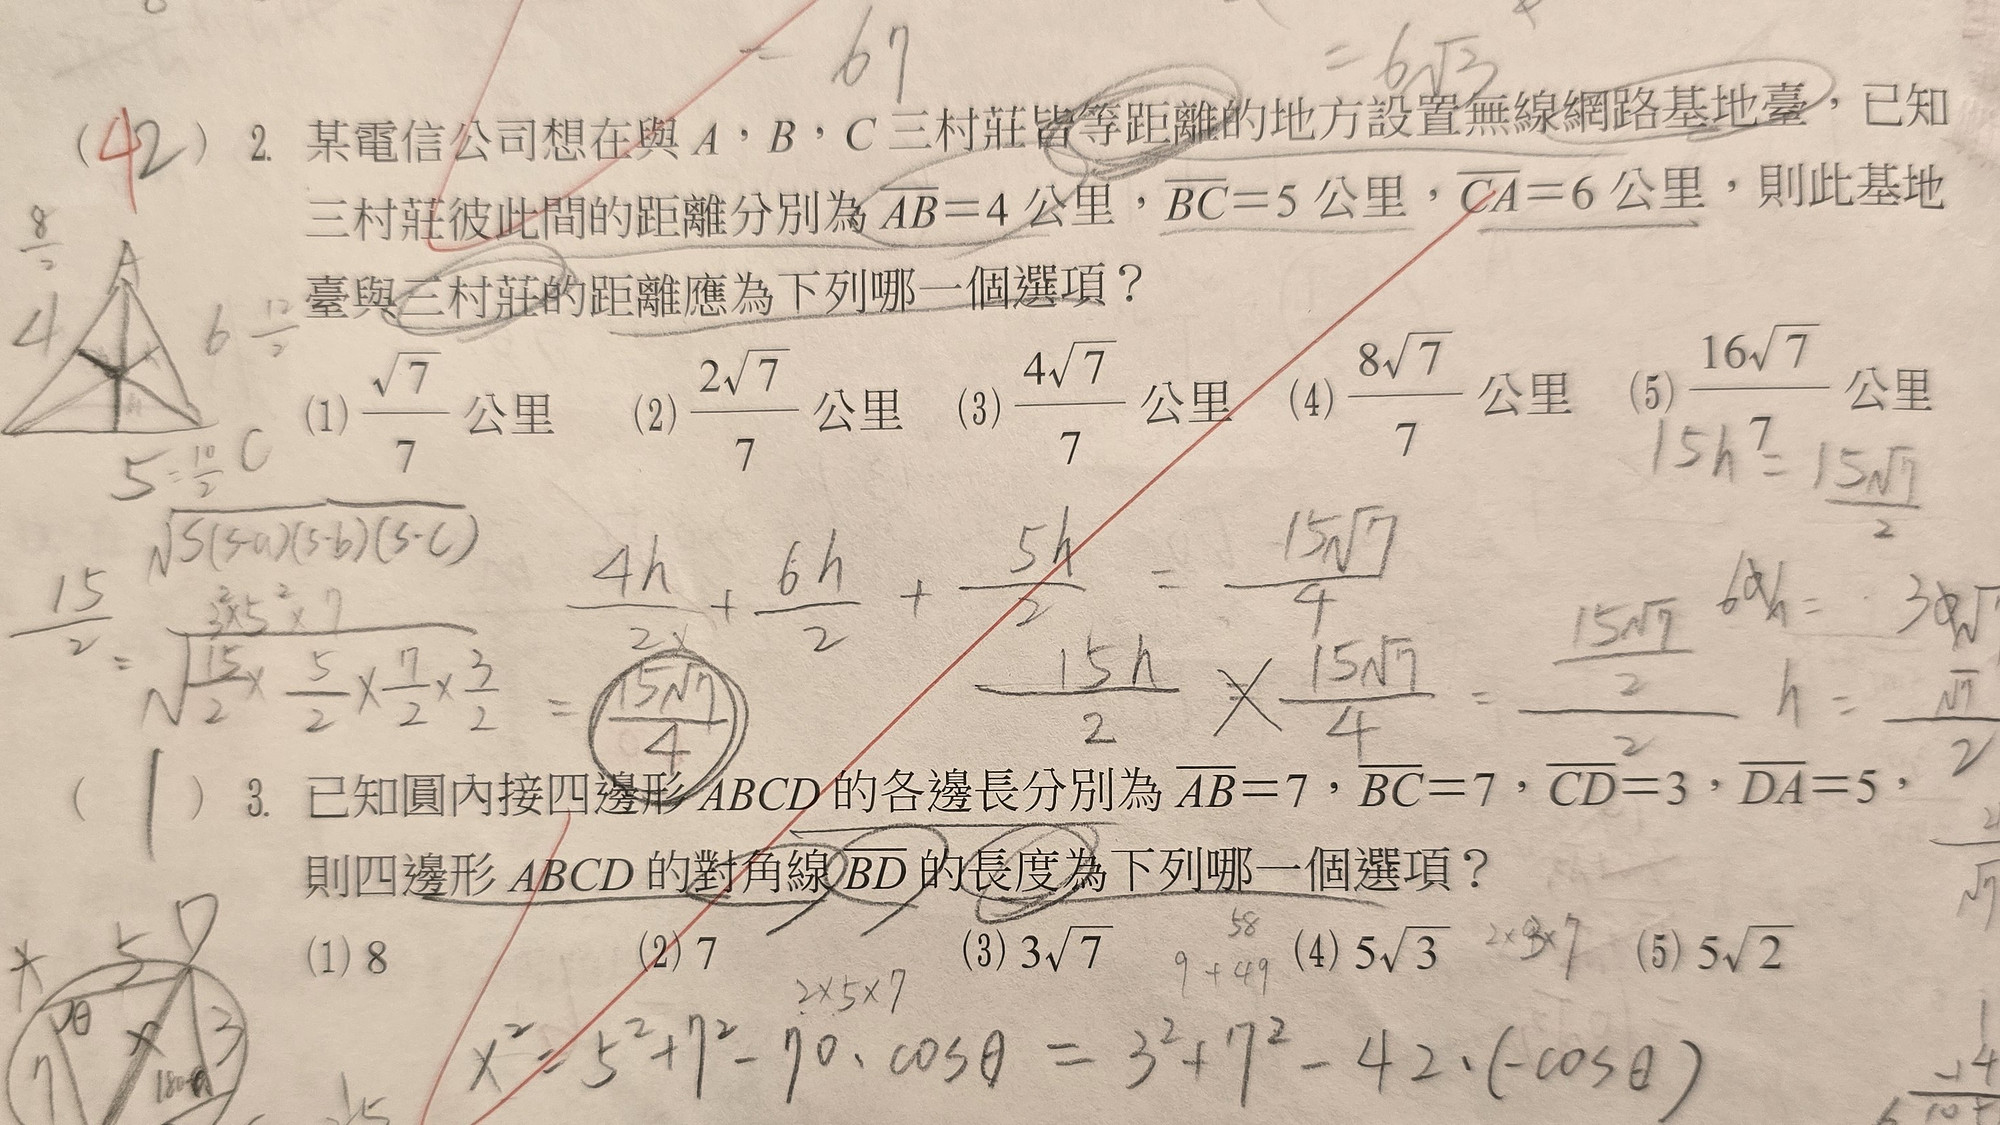 = 67
= 6√3
(42) 2. 某電信公司想在與 A,B,C 三村莊皆等距離的地方設置無線網路基地臺,已知
三村莊彼此間的距離分別為 AB=4 公里,BC=5 公里,CA=6 公里,則此基地
臺與三村莊的距離應為下列哪一個選項?
(1) √7/7 公里 (2) 2√7/7 公里 (3) 4√7/7 公里 (4) 8√7/7 公里 (5) 16√7/7 公里
A
4 6
5 = 10/2 C
15h = 15√7/2
√S(S-a)(S-b)(S-c)
4h/2 + 6h/2 + 5h/2 = 15√7/4
15/2
3²×5²×7
= √15/2 × 5/2 × 7/2 × 3/2 = 15√7/4
15h/2 × 15√7/4 = 15√7/2/2
h = √7/2
(1) 3. 已知圓內接四邊形 ABCD 的各邊長分別為 AB=7,BC=7,CD=3,DA=5,
則四邊形 ABCD 的對角線 BD 的長度為下列哪一個選項?
(1) 8 (2) 7 (3) 3√7 (4) 5√3 (5) 5√2
58
9+49
2×3×7
2×5×7
5 D
θ x 3
7 180-θ
x² = 5²+7²-70·cosθ = 3²+7²-42·(-cosθ)